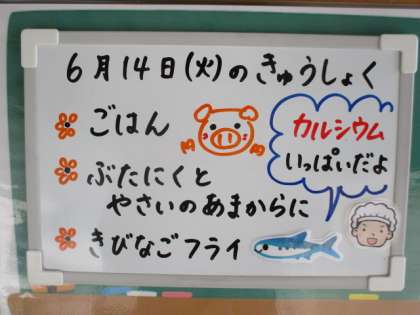 6月14日(火)のきゅうしょく
ごはん
カルシウム
いっぱいだよ
ぶたにくと
やさいのあまからに
きびなごフライ